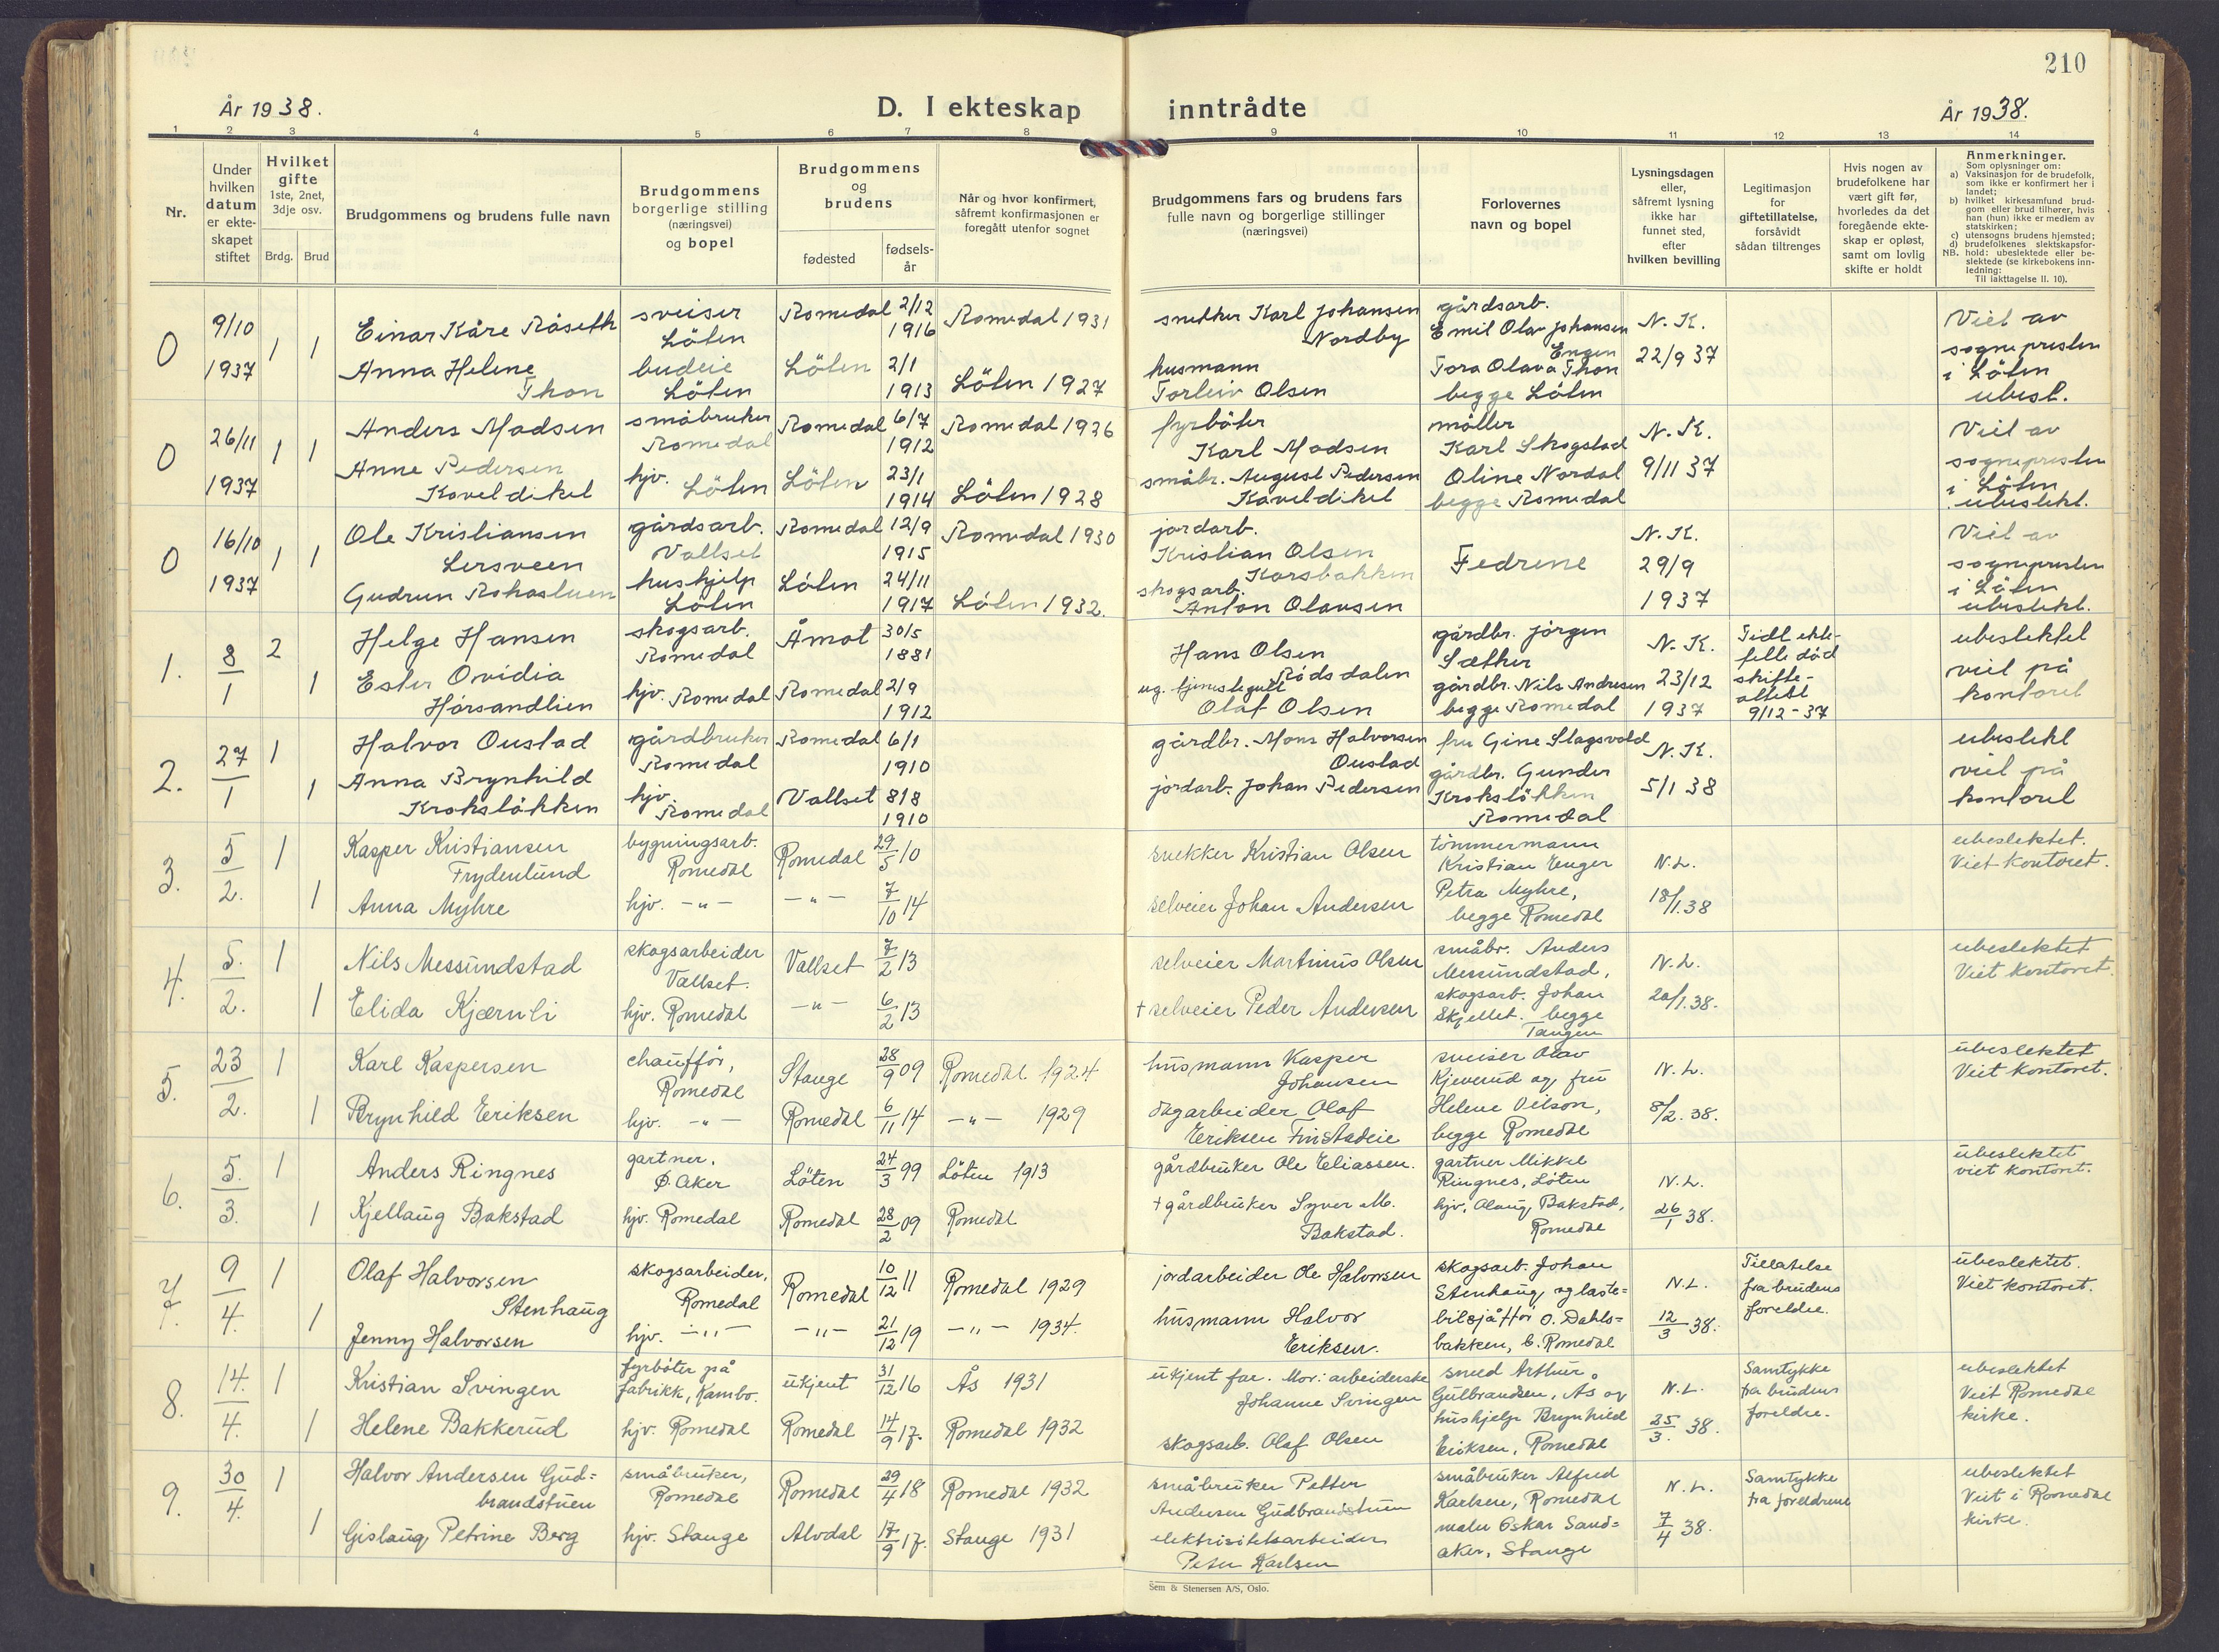 210
År 1938.
D. I ekteskap inntrådte
År 1938.
1 2 3 4 5 6 7 8 9 10 11 12 13 14
Nr.
Under hvilken datum er ekte-skapet stiftet
Hvilket gifte 1ste, 2net, 3dje osv.
Brdg. Brud
Brudgommens og brudens fulle navn
Brudgommens borgerlige stilling (næringsvei) og bopel
Brudgommens og brudens
fødested
fødsels-år
Når og hvor konfirmert, såfremt konfirmasjonen er foregått utenfor sognet
Brudgommens fars og brudens fars fulle navn og borgerlige stillinger (næringsvei)
Forlovernes navn og bopel
Lysningsdagen eller, såfremt lysning ikke har funnet sted, efter hvilken bevilling
Legitimasjon for giftetillatelse, forsåvidt sådan tiltrenges
Hvis nogen av brudefolkene har vært gift før, hvorledes da det foregående ekte-skap er opløst, samt om lovlig skifte er holdt
Anmerkninger.
Som oplysninger om:
a) Vaksinasjon for de brudefolk, som ikke er konfirmert her i landet;
b) hvilket kirkesamfund brud-gom eller brud tilhører, hvis han (hun) ikke er medlem av statskirken;
c) utensogns brudens hjemsted;
d) brudefolkenes slektskapsfor-hold: ubeslektede eller be-slektede (se kirkebokens inn-ledning:
NB. Til iakttagelse II. 10).
0 9/10 1937 1 1 Einar Kåre Råseth sveiser Löten Romedal 2/12 1916 Romedal 1931 snekker Karl Johansen Nordby gårdsarb. Emil Olav Johansen Engen N. K. Viet av
Anna Helene Thon budeie Löten Löten 2/1 1913 Löten 1927 husmann Torleiv Olsen Tora Olava Thon begge Löten 22/9 37 sognepresten i Löten ubesl.
0 26/11 1937 1 1 Anders Madsen småbruker Romedal Romedal 6/7 1912 Romedal 1926 fyrböter Karl Madsen möller Karl Skogstad N. K. Viet av
Anne Pedersen Kaveldiket hjv. Löten Löten 23/1 1914 Löten 1928 småbr. August Pedersen Kaveldiket Oline Nordal begge Romedal 9/11 37 sognepresten i Löten ubeslekt.
0 16/10 1937 1 1 Ole Kristiansen Lersveen gårdsarb. Vallset Romedal 12/9 1915 Romedal 1930 jordarb. Kristian Olsen Korsbakken Fedrene N. K. 29/9 1937 Viet av
Gudrun hushjelp Löten Löten 24/11 1917 Löten 1932. skogsarb. Anton Olausen sognepresten i Löten ubeslekt.
1. 8/1 2 Helge Hansen skogsarb. Romedal Åmot 30/5 1881 Hans Olsen Rödsdalen gårdbr. Jörgen Sæther N. K. Tidl ekte-felle död skifte-attest 9/12-37 ubeslektet
1 Ester Ovidia Hörsandlien hjv. Romedal Romedal 2/9 1912 ug. tjenestegutt Olaf Olsen gårdbr. Nils Andresen begge Romedal 23/12 1937 viet på kontoret
2. 27/1 1 Halvor Oustad gårdbruker Romedal Romedal 6/1 1910 gårdbr. Mons Halvorsen Oustad fru Gine Slagsvold N. K. ubeslekt
1 Anna Brynhild Kroksløkken hjv. Romedal Vallset 8/8 1910 jordarb. Johan Pedersen gårdbr. Gunder Kroksløkken Romedal 5/1 38 viet på kontoret
3. 5/2. 1 Kasper Kristiansen Frydenlund bygningsarb. Romedal Romedal 29/5 10 snekker Kristian Olsen tömmermann Kristian Enger N.L. ubeslektet.
1 Anna Myhre hjv. -"- -"- 7/10 14 selveier Johan Andersen Petra Myhre, begge Romedal 18/1.38 Viet kontoret.
4. 5./2. 1 Nils Messundstad skogsarbeider Vallset. Vallset 7/2 13 selveier Martinus Olsen småbr. Anders Messundstad, N.L. ubeslektet
1 Elida Kjærnli hjv. Romedal -"- 6/2 13 + selveier Peder Andersen skogsarb. Johan Skjellet. begge Tangen 20/1.38. Viet kontoret.
5. 23/2. 1 Karl Kaspersen chaufför, Romedal Stange 28/9 09 Romedal 1924 husmann Kasper Johansen sveiser Olav Kjeverud og fru N.L. ubeslektet
1 Brynhild Eriksen hjv. -"- Romedal 6/11 14 -"- 1929 dagarbeider Olaf Eriksen Finstadeie Helene Nilson, begge Romedal 8/2. 38. Viet kontoret.
6. 5./3. 1 Anders Ringnes gartner, Ø. Aker Löten 24/3 99 Löten 1913 gårdbruker Ole Eliassen. gartner Mikkel Ringnes, Löten N.L. ubeslektet
1 Kjellaug Bakstad hjv. Romedal Romedal 28/2 09 Romedal + gårdbruker Syver M. Bakstad. hjv. Olaug Bakstad, Romedal 26/1 38. viet kontoret.
7. 9/4. 1 Olaf Halvorsen Stenhaug skogsarbeider, Romedal Romedal 10/12 11 Romedal 1929 jordarbeider Ole Halvorsen skogsarb. Johan Stenhaug og laste= N.L. Tillatelse fra brudens foreldre. ubeslektet.
1 Jenny Halvorsen hjv. -"- -"- 21/12 19 -"- 1934. husmann Halvor Eriksen. bilsjåffør O. Dahls=bakken, b. Romedal 12/3 38. Viet kontoret.
8. 14./4. 1 Kristian Svingen fyrböter på fabrikk, Kambo. ukjent 31/12 16 Ås 1931 ukjent far. Mor: arbeiderske Johanne Svingen smed Arthur Gulbrandsen, Ås og N.L. Samtykke fra brudens foreldre. ubeslektet
1 Helene Bakkerud hjv. Romedal Romedal 14/9 17. Romedal 1932 skogsarb. Olaf Olsen hushjelp Brynhild Eriksen, Romedal 25/3. 38. Viet Romedal kirke.
9. 30/4. 1 Halvor Andersen Gud=brandstuen småbruker, Romedal Romedal 29/4 18 Romedal 1932 småbruker Petter Andersen Gudbrandstuen småbruker Alfred Karlsen, Romedal N.L. Samtykke fra foreldrene ubeslektet
1 Gislaug Petrine Berg hjv. Stange Alvdal 17/9 17. Stange 1931 elektrisitetsarbeider Peter Karlsen maler Oskar Sand=aker, Stange 7/4 38. Viet i Romedal kirke.
Sem & Stenersen A/S, Oslo.